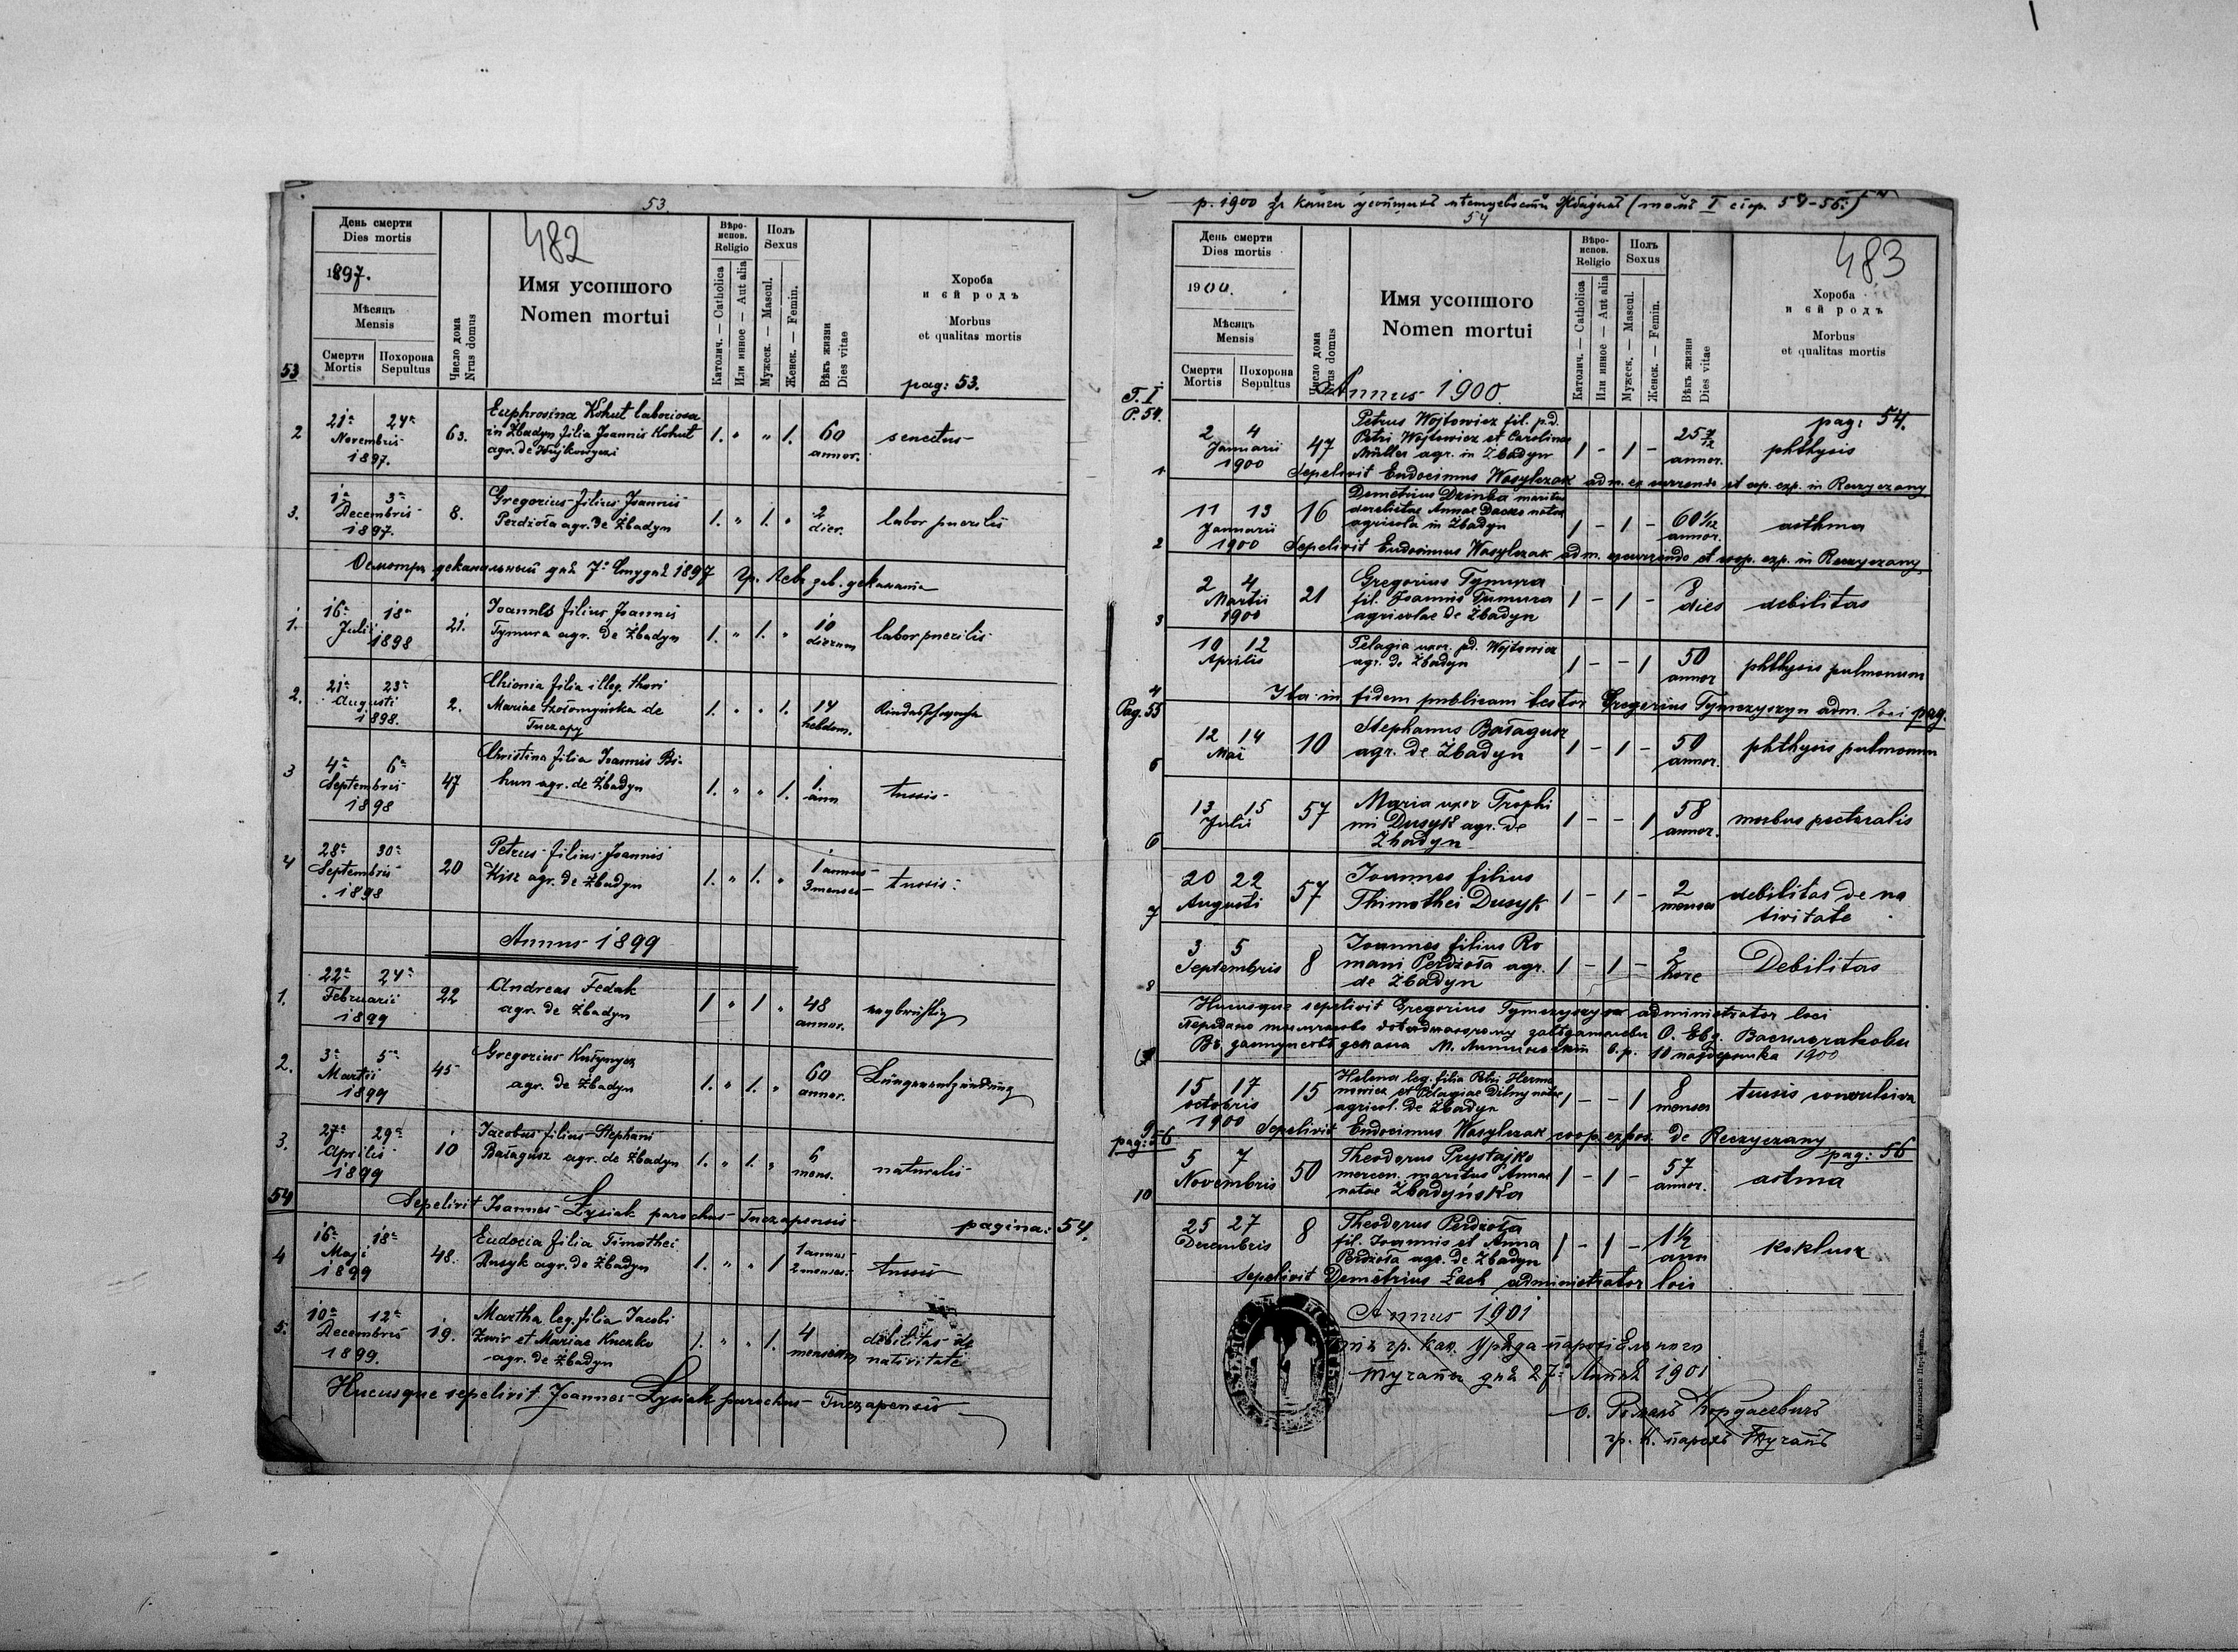 53.
482
День смерти
Dies mortis
1897.
Мѣсяцъ
Mensis
Смерти
Mortis
Похорона
Sepultus
Число дома
Nrus domus
Имя усопшого
Nomen mortui
Вѣро-
испов.
Religio
Католич. — Catholica
Или инное — Aut alia
Полъ
Sexus
Мужеск. — Mascul.
Женск. — Femin.
Вѣкъ жизни
Dies vitae
Хороба
и єй родъ
Morbus
et qualitas mortis
53
pag: 53.
2 21a 24a Novembris 1897. 63. Euphrosina Kohut laboriosa
in Żbadyn filia Joannis Kohut
agr. de 1. " " 1. 60 annor. senectus
3. 1a 3a Decembris 1897. 8. Gregorius filius Joannis
Perdżoła agr. de Żbadyn 1. " 1. " 2 dier. labor puerilis
деканальный днѧ 7. Студня 1897 Гр. дек.
1. 16a 18a Julii 1898 21. Joannes filius Joannis
Tymura agr. de Żbadyn 1. " 1. " 10 dierum labor puerilis
2. 21a 23a Augusti 1898. 2. Chionia filia illeg. thori
Mariae de
Tuczapy 1. " " 1. 14 hebdom.
3 4a 6a Septembris 1898 47 Christina filia Joannis Bi-
hun agr. de Żbadyn 1. " " 1. 1 ann tussis
4 28a 30a Septembris 1898 20 Petrus filius Joannis
Kisz agr. de Żbadyn 1. " 1. " 1 annus 3 menses tussis
Annus 1899
1. 22a 24a Februarii 1899 22 Andreas Fedak
agr. de Żbadyn 1 " 1 " 48 annor.
2. 3a 5a Martii 1899 45 Gregorius
agr. de Żbadyn 1. " 1. " 60 annor. Lungenentzündung
3. 27a 29a Aprilis 1899 10 Jacobus filius Stephani
Bałagusz agr. de Żbadyn 1. " 1. " 6 mens. naturalis
54 Sepelivit Joannes Łysiak parochus Tuczapensis
pagina: 54.
4 16a 18a Maji 1899 48. Eudocia filia Timothei
Dusyk agr. de Żbadyn 1. " " 1 1 annus 2 menses tussis
5. 10a 12a Decembris 1899. 19. Martha leg. filia Jacobi
Żwir et Mariae Kuczko
agr. de Żbadyn 1. " " 1. 4 mensium debilitas de
nativitate
Hucusque sepelivit Joannes Łysiak parochus Tuczapensis
р. 1900 книги (томъ I стор. 54-56.)
54
483
День смерти
Dies mortis
1900.
Мѣсяцъ
Mensis
Смерти
Mortis
Похорона
Sepultus
Число дома
Nrus domus
Имя усопшого
Nomen mortui
Вѣро-
испов.
Religio
Католич. — Catholica
Или инное — Aut alia
Полъ
Sexus
Мужеск. — Mascul.
Женск. — Femin.
Вѣкъ жизни
Dies vitae
Хороба
и єй родъ
Morbus
et qualitas mortis
Annus 1900.
T. I
P. 54.
pag: 54.
1 2 4 Januarii 1900 47 Petrus Wojtowicz fil. p.d.
Petri Wojtowicz et Carolinae
Müller agr. in Żbadyn 1 - 1 - 25 7/12 annor. phthysis
Sepelivit Eudocimus Wasylczak adm. excurrendo et cop. exp. in Reczyczany
2 11 13 Januarii 1900 16 Demetrius Dzinba maritus
derelictae Annae Dacko natae
agricola in Żbadyn 1 - 1 - 60 1/12 annor. asthma
Sepelivit Eudocimus Wasylczak adm. excurrendo et coop. exp. in Reczyczany
3 2 4 Martii 1900 21 Gregorius Tymura
fil. Joannis Tumura
agricolae de Żbadyn 1 - 1 - 8 dies debilitas
4 10 12 Aprilis Pelagia uxor. pd. Wojtowicz
agr. de Żbadyn 1 - - 1 50 annor phthysis pulmonum
Ita in fidem publicam testor Gregorius Tymczyszyn adm. loci pag.
Pag. 55
5 12 14 Mai 10 Stephanus Bałagusz
agr. de Żbadyn 1 - 1 - 50 annor. phthysis pulmonum
6 13 15 Julii 57 Maria uxor Trophi
mi Dusyk agr. de
Żbadyn 1 - - 1 58 annor. morbus pectoralis
7 20 22 Augusti 57 Joannes filius
Thimothei Dusyk 1 - 1 - 2 menses debilitas de na
tivitate
8 3 5 Septembris 8 Joannes filius Ro
mani Perdżoła agr.
de Żbadyn 1 - 1 - 2 hore Debilitas
Hucusque sepelivit Gregorius Tymczyszyn administrator loci
О. Евд. Васильчакови
1900
9 15 17 octobris 1900 15 Helena leg. filia Petri Herma
nowicz et Pelagiae Dilny natae
agricol. de Żbadyn 1 - - 1 8 menses tussis convulsiva
Sepelivit Eudocimus Wasylczak coop. expos. de Reczyczany
pag: 56
pag: 56
10 5 7 Novembris 50 Theodorus Prystajko
mercen. maritus Annae
natae Żbadyńska 1 - 1 - 57 annor. astma
25 27 Decembris 8 Theodorus Perdżoła
fil. Joannis et Anna
Perdżoła agr. de Żbadyn 1 - 1 - 1 1/2 ann koklusz
Sepelivit Demetrius Łach administrator loci
Annus 1901
гр. кат. Уряда парохіѧльного
днѧ 27. 1901
о. Романъ
гр. к. парохъ